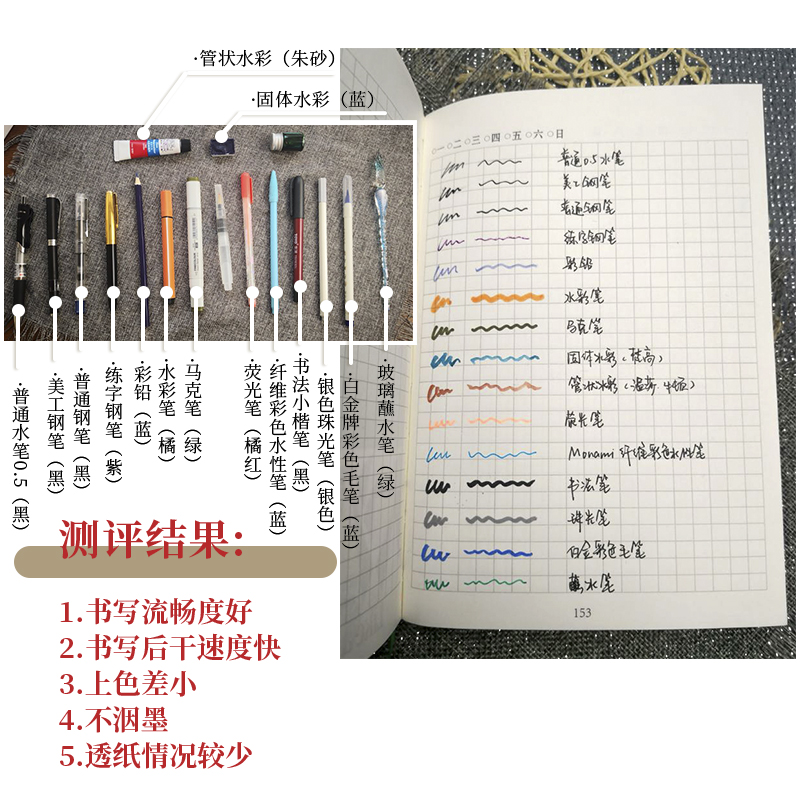 ·管状水彩（朱砂）
·固体水彩（蓝）
·普通水笔0.5（黑）
·美工钢笔（黑）
·普通钢笔（黑）
·练字钢笔（紫）
·彩铅（蓝）
·水彩笔（橘）
·马克笔（绿）
·荧光笔（橘红）
·纤维彩色水性笔（蓝）
·书法小楷笔（黑）
·银色珠光笔（银色）
·白金牌彩色毛笔（蓝）
·玻璃蘸水笔（绿）
○一○二○三○四○五○六○日
普通0.5水笔
美工钢笔
普通钢笔
练字钢笔
彩铅
水彩笔
马克笔
固体水彩（梵高）
管状水彩（温莎·牛顿）
荧光笔
Monami 纤维彩色水性笔
书法笔
珠光笔
白金彩色毛笔
蘸水笔
153
测评结果：
1.书写流畅度好
2.书写后干速度快
3.上色差小
4.不洇墨
5.透纸情况较少